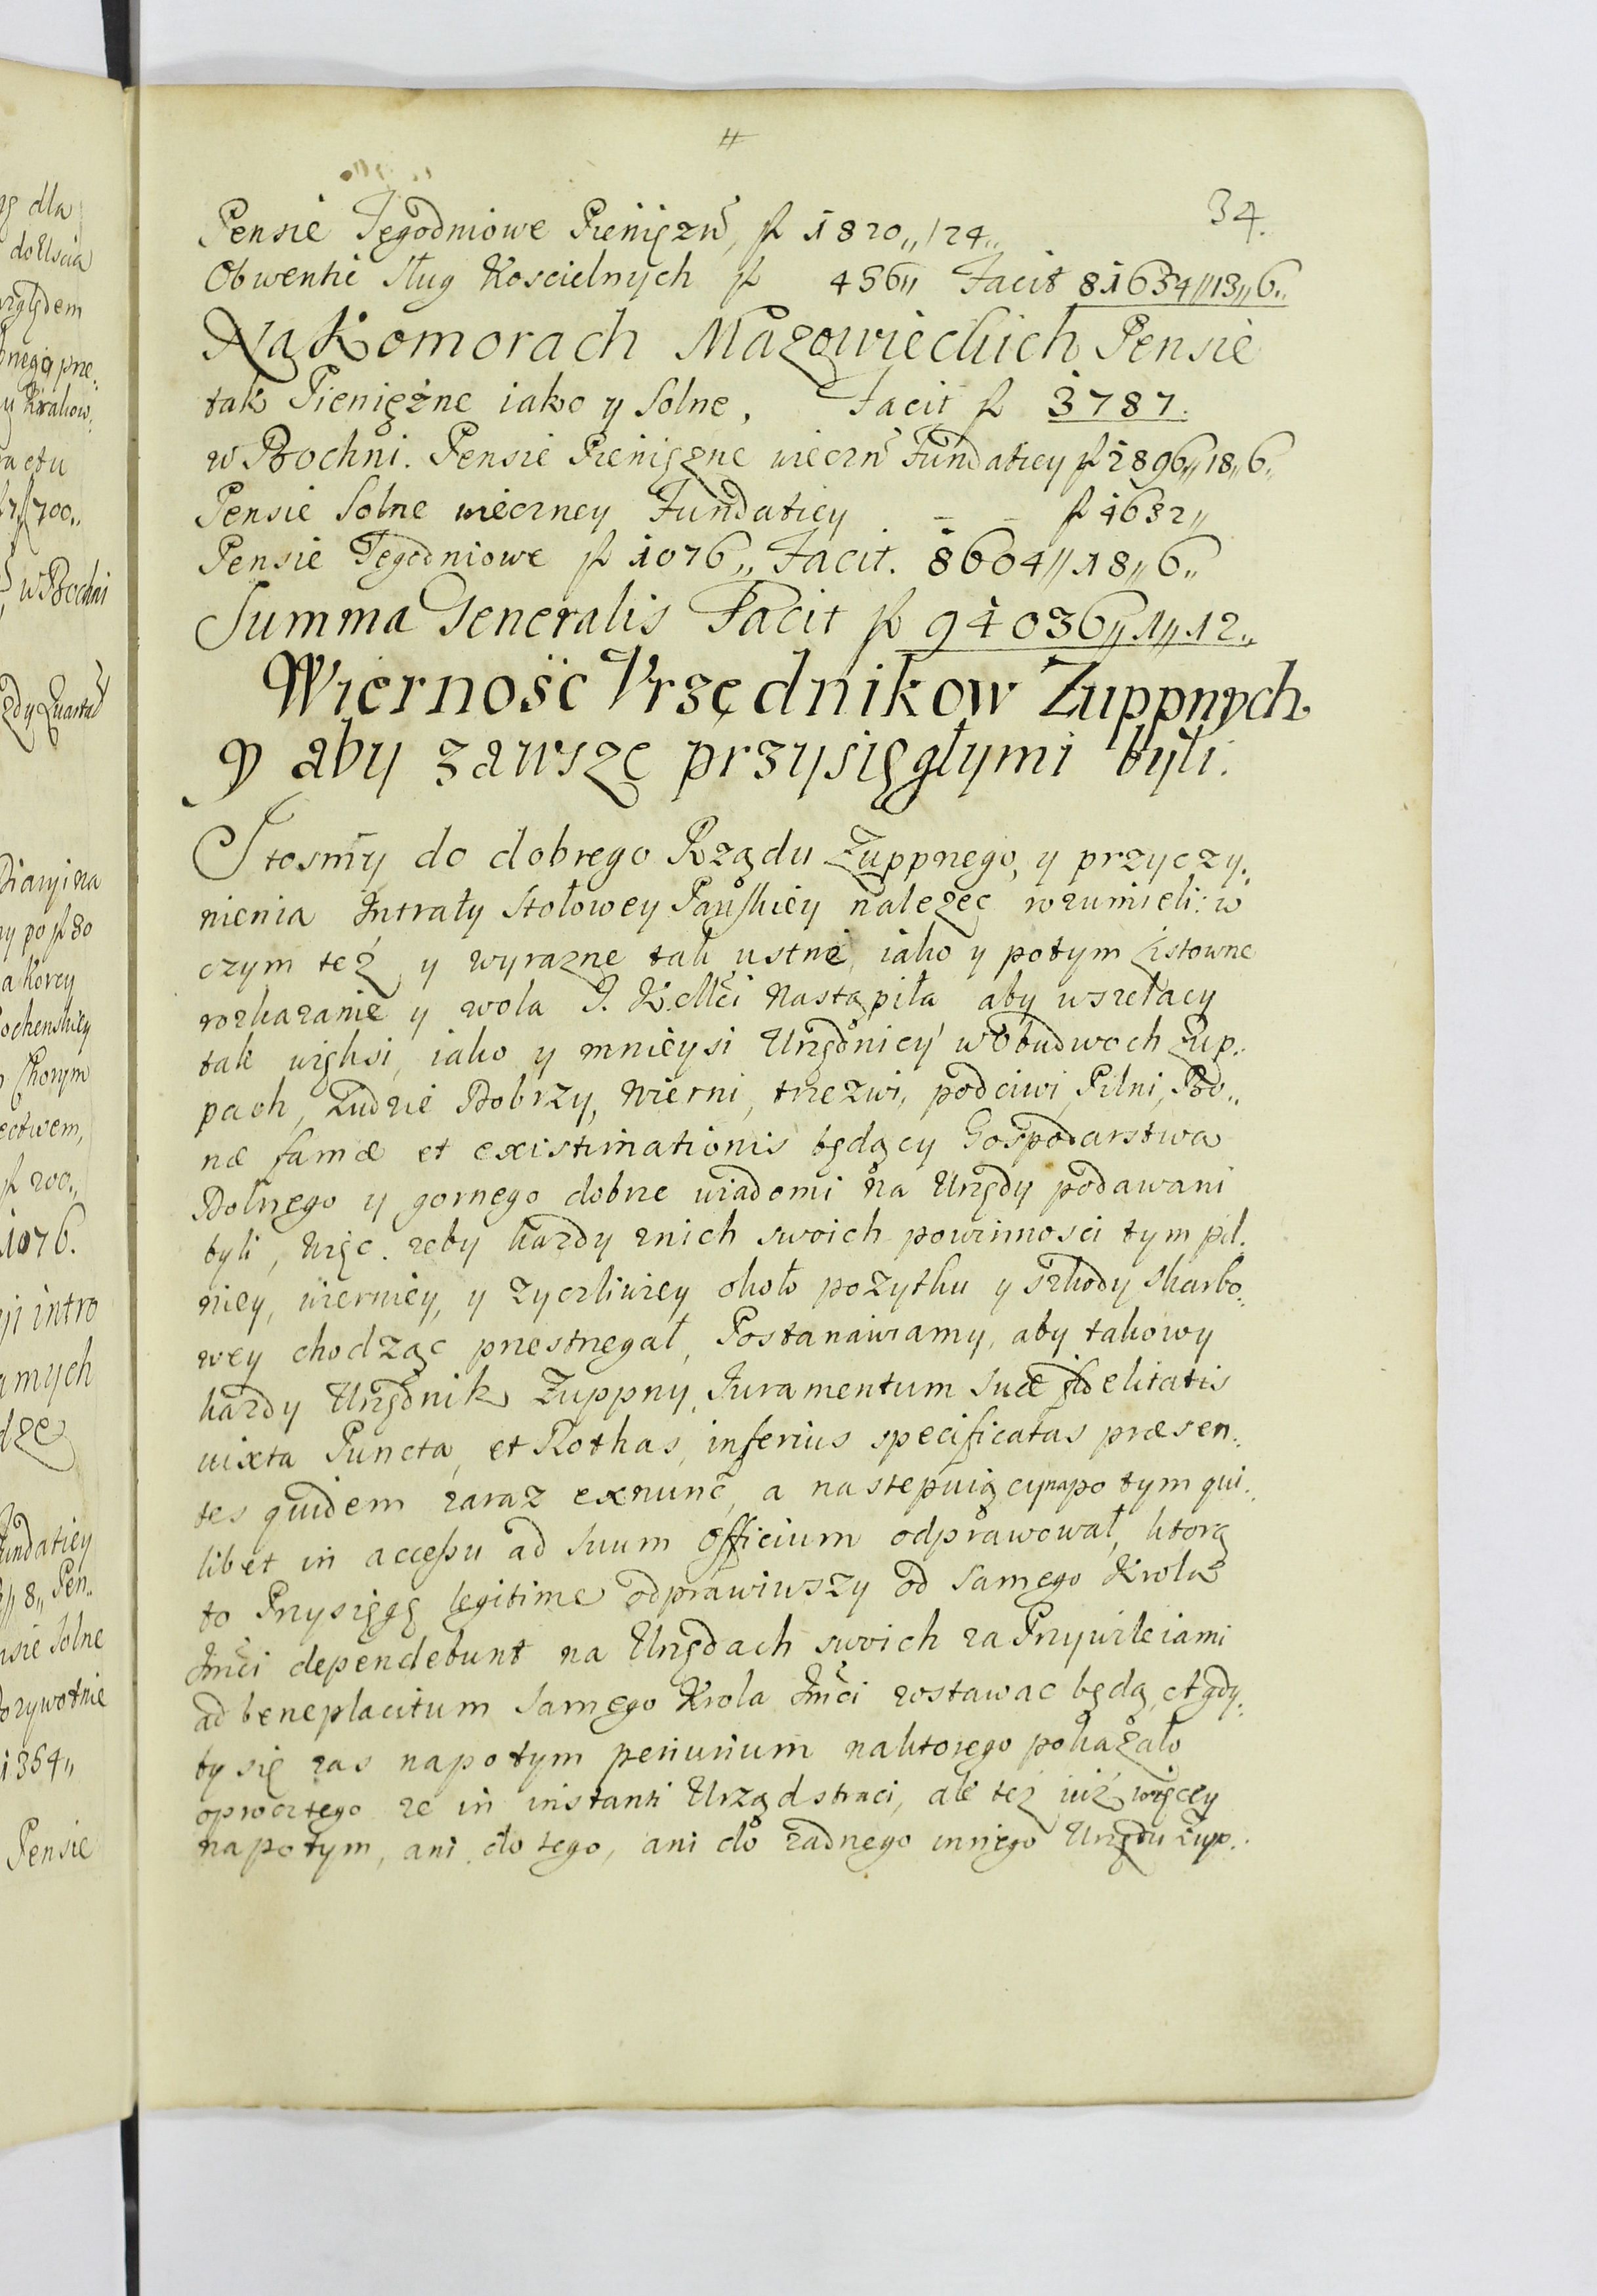 34.
Pensie Tegodniowe Pieniężń, fl 1820,,/24,,
Obwentie Sług Koscielnych fl 456,, Facit 81634,,13,,6,,
Na Komorach Mazowieckich Pensie
tak Pieniężne iako y Solne, Facit fl 3787.
w Bochni. Pensie Pieniężne wieczń Fundatiey fl 2896,,18,,6,,
Pensie Solne wieczney Fundatiey — — fl 4632,,
Pensie Tegodniowe fl 1076,, Facit. 8604,,18,,6,,
Summa Generalis Facit fl 94036,,1,,12,,
Wierność Vrzędnikow Zuppnych
y aby zawsze przysięgłymi byli.
Itosmy do dobrego Rządu Zuppnego, y przyczy.
nienia Intraty Stołowey Pańskiey nalezec rozumieli: w
czym też y wyrazne tak ustne, iako y potym Listowne
rozkazanie y wola J. K. Mći nastąpiła aby wszelacy
tak więksi, iako y mnieysi Urzędnicy w Obudwoch Zup,,
pach, Ludzie Dobrzy, Wierni, trzezwi, podciwi, Pilni, Bo,,
næ famæ et existimationis będący Gospodarstwa
Dolnego y gornego dobrze wiadomi na Urzędy podawani
byli, więc zeby kazdy znich swoich powinnosci tym pil.
niey, wierniey, y zyczliwiey około pożytku y szkody skarbo,,
wey chodząc przestrzegał, Postanawiamy, aby takowy
kazdy Urzędnik Zuppny, Juramentum suæ fidelitatis
iuxta Puncta, et Rothas, inferius specificatas præsen,,
tes quidem zaraz exnunc, a nastepuiący napotym qui,,
libet in accessu ad suum Officium odprawował, ktorą
to Przysięgę legitime odprawiwszy od samego Krola
Jmći dependebunt na Urzędach swoich za Przywileiami
ad beneplacitum samego Krola Jmći zostawac będą, et gdy,,
by się zas napotym periurium naktorego pokazało
oprocztego ze in instanti Urząd straci, ale też iuż więcey
napotym, ani do tego, ani do zadnego innego Urzędu Zup,,